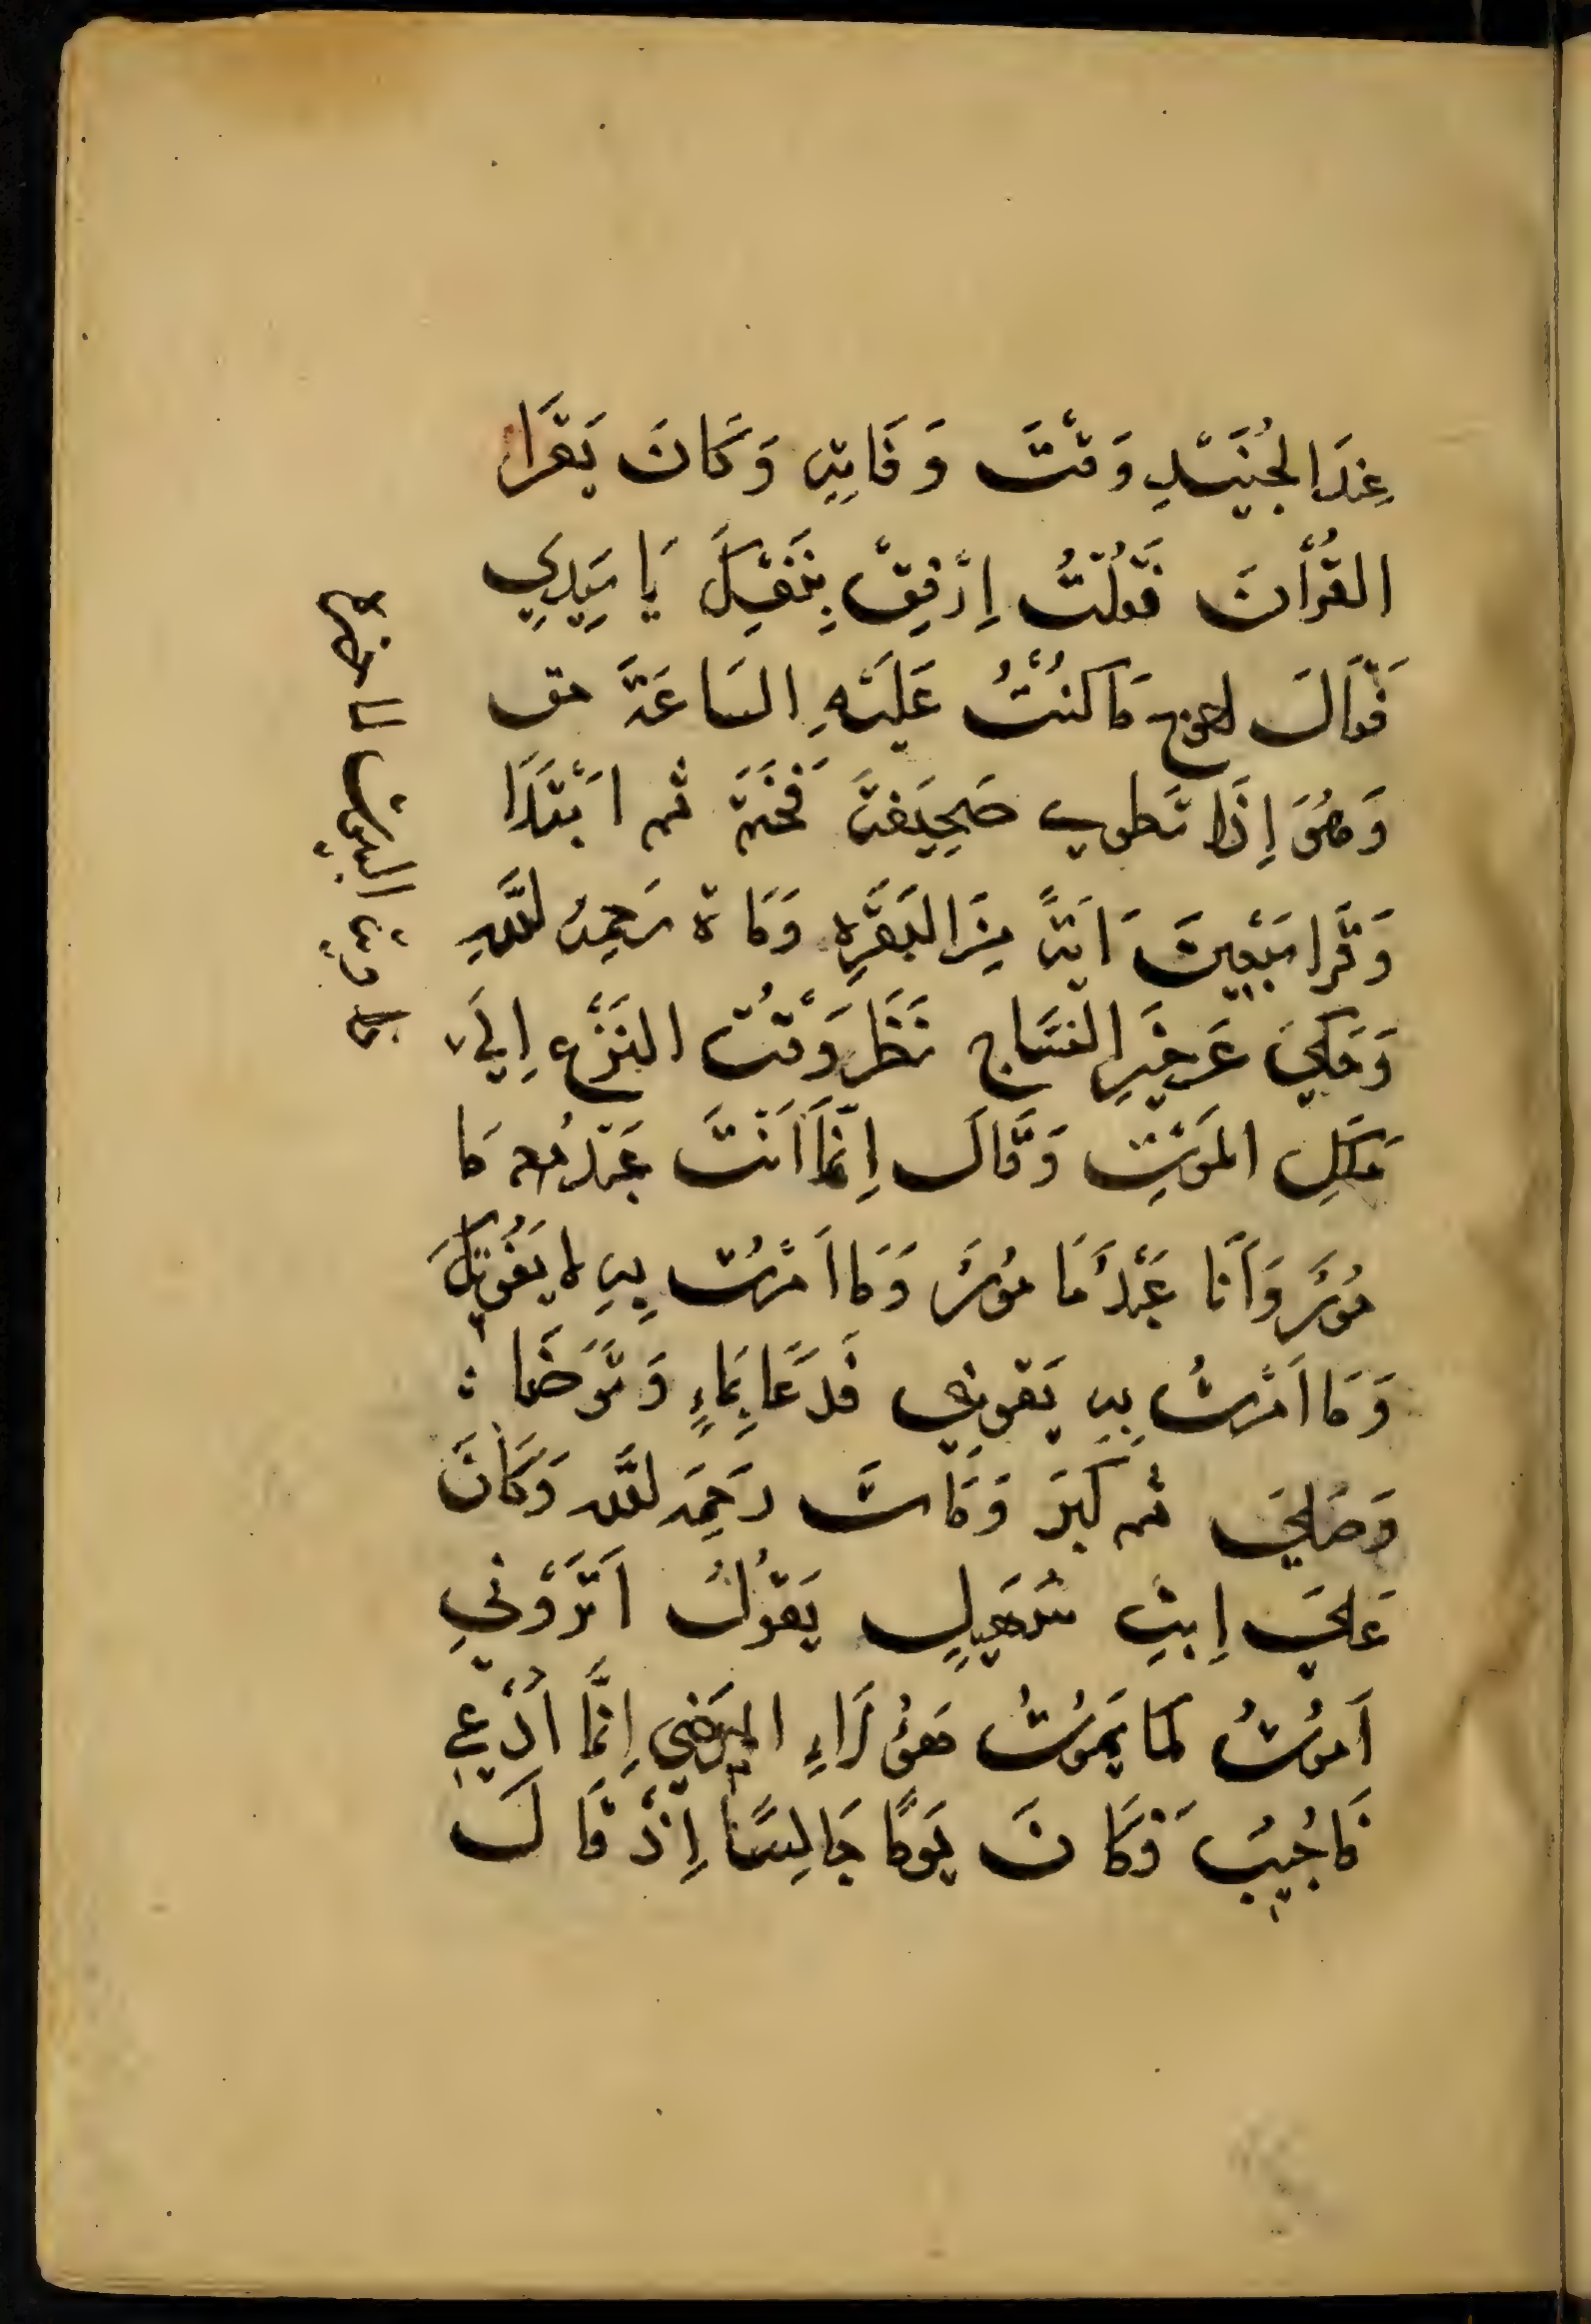 عِنْدَ الجُنَيْدِ وَقْتَ وَفَاتِهِ وَكَانَ يَقْرَا
القُرْأنَ فَقُلْتُ اِرْفِقْ بِنَفْسِكَ يَا سَيِّدِي
فَقَالَ احوج مَا كُنْتُ عَلَيْهِ السَاعَةَ
وَهُوَ إِذَا تَطوي صَحِيفَة فَخَتَمَ ثم ابْتَدَا
وَقَرا سَبْعِينَ اَيَةً مِنَ البَقَرِه وَمَاة رَحِمهُ اللَّهِ
وَحَكِيَ عَن خَيْرِ النسَاج نَظَرَ وَقْتُ النَزْعِ اِلَي
مَلَكِ المَوْتِ وَقَالَ اِنّمَا اَنْتَ عَبْدُ مَا
مُوْرٌ وَاَنَا عَبْدٌ مَا مُورٌ وَمَا اَمْرْتُ بِهِ لا يَفُوتكَ
وَمَا اَمْرْتُ بِهِ يَفوتني فَدَعَا بِمَاءٍ وَتَوَضَا :
وَصَلي ثم كَبَرَ وَمَاتَ رَحِمَه اللَّه وَكَانَ
عَلي اِبنِ سُهَيلٍ يَقوْلُ اَتَرَوْني
اَمُوتُ كَمَا يَمُوتُ هَؤلَاءِ المرَضي اِنَّمَا اُدْعي
فَاجُيبُ فَكَانَ يَوْمًا جَالِسًا اِذْ قَالَ